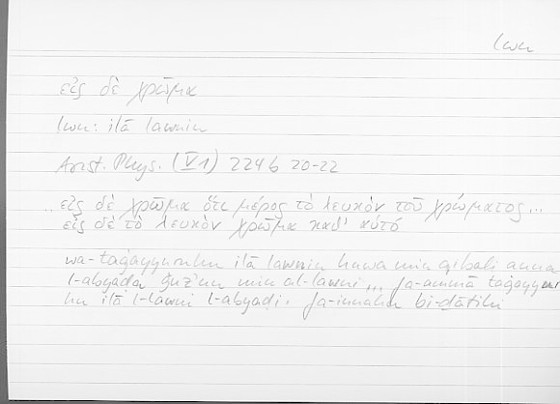 lwn
εἰς δὲ χρῶμα
lwn: ilā lawnin
Arist. Phys. (V 1) 224b 20-22
.. εἰς δὲ χρῶμα ὅτι μέρος τὸ λευκὸν τοῦ χρώματος...
εἰς δὲ τὸ λευκὸν χρῶμα καθ' αὑτό
wa-taġayyuruhu ilā lawnin huwa min qibali anna
l-abyaḍa ǧuz'un min al-lawni ... fa-ammā taġayyuru
hu ilā l-lawni l-abyaḍi, fa-innahu bi-ḏātihi